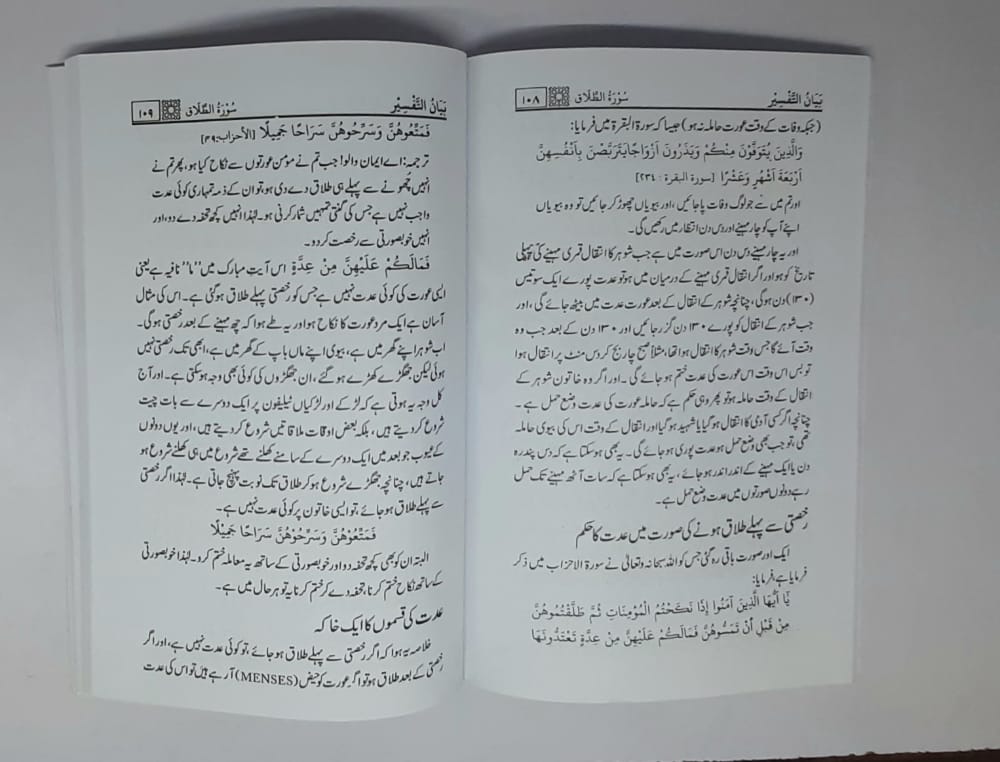 بَیَانُ التَّفْسِیْر
سُوْرَۃُ الطَّلَاق
۱۰۸
(جبکہ وفات کے وقت عورت حاملہ نہ ہو) جیسا کہ سورۃ البقرۃ میں فرمایا:
وَالَّذِیْنَ یُتَوَفَّوْنَ مِنْکُمْ وَیَذَرُونَ أَزْوَاجًا یَتَرَبَّصْنَ بِأَنْفُسِهِنَّ
أَرْبَعَةَ أَشْهُرٍ وَعَشْرًا [سورة البقرة : ۲۳٤]
اور تم میں سے جو لوگ وفات پا جائیں، اور بیویاں چھوڑ کر جائیں تو وہ بیویاں
اپنے آپ کو چار مہینے اور دس دن انتظار میں رکھیں گی۔
اور یہ چار مہینے دس دن اس صورت میں ہے جب شوہر کا انتقال قمری مہینے کی پہلی
تاریخ کو ہو اور اگر انتقال قمری مہینے کے درمیان میں ہو تو عدت پورے ایک سو تیس
(۱۳۰) دن ہوگی، چنانچہ شوہر کے انتقال کے بعد عورت عدت میں بیٹھ جائے گی، اور
جب شوہر کے انتقال کو پورے ۱۳۰ دن گزر جائیں اور ۱۳۰ دن کے بعد جب وہ
وقت آئے گا جس وقت شوہر کا انتقال ہوا تھا، مثلاً صبح چار بج کر دس منٹ پر انتقال ہوا
تو بس اس وقت اس عورت کی عدت ختم ہو جائے گی۔ اور اگر وہ خاتون شوہر کے
انتقال کے وقت حاملہ ہو تو پھر وہی حکم ہے کہ حاملہ عورت کی عدت وضعِ حمل ہے۔
چنانچہ اگر کسی آدمی کا انتقال ہو گیا یا شہید ہو گیا اور انتقال کے وقت اس کی بیوی حاملہ
تھی، تو جب بھی وضعِ حمل ہو عدت پوری ہو جائے گی۔ یہ بھی ہو سکتا ہے کہ دس پندرہ
دن یا ایک مہینے کے اندر اندر ہو جائے، یہ بھی ہو سکتا ہے کہ سات آٹھ مہینے تک حمل
رہے دونوں صورتوں میں عدت وضعِ حمل ہے۔
رخصتی سے پہلے طلاق ہونے کی صورت میں عدت کا حکم
ایک اور صورت باقی رہ گئی جس کو اللہ سبحانہ وتعالیٰ نے سورۃ الاحزاب میں ذکر
فرمایا ہے، فرمایا:
یَا أَیُّهَا الَّذِیْنَ آمَنُوا إِذَا نَکَحْتُمُ الْمُؤْمِنَاتِ ثُمَّ طَلَّقْتُمُوهُنَّ
مِنْ قَبْلِ أَنْ تَمَسُّوهُنَّ فَمَالَکُمْ عَلَیْهِنَّ مِنْ عِدَّةٍ تَعْتَدُّونَهَا
بَیَانُ التَّفْسِیْر
سُوْرَۃُ الطَّلَاق
۱۰۹
فَمَتِّعُوهُنَّ وَسَرِّحُوهُنَّ سَرَاحًا جَمِیْلًا [الأحزاب:٤٩]
ترجمہ: اے ایمان والو! جب تم نے مؤمن عورتوں سے نکاح کیا ہو، پھر تم نے
انہیں چھونے سے پہلے ہی طلاق دے دی ہو، تو ان کے ذمہ تمہاری کوئی عدت
واجب نہیں ہے جس کی گنتی تمہیں شمار کرنی ہو۔ لہٰذا انہیں کچھ تحفہ دے دو، اور
انہیں خوبصورتی سے رخصت کر دو۔
فَمَالَکُمْ عَلَیْهِنَّ مِنْ عِدَّةٍ اس آیتِ مبارک میں "ما" نافیہ ہے یعنی
ایسی عورت کی کوئی عدت نہیں ہے جس کو رخصتی سے پہلے طلاق ہو گئی ہے۔ اس کی مثال
آسان ہے ایک مرد عورت کا نکاح ہوا اور یہ طے ہوا کہ چھ مہینے کے بعد رخصتی ہوگی۔
اب شوہر اپنے گھر میں ہے، بیوی اپنے ماں باپ کے گھر میں ہے، ابھی تک رخصتی نہیں
ہوئی لیکن جھگڑے کھڑے ہو گئے، ان جھگڑوں کی کوئی بھی وجہ ہو سکتی ہے۔ اور آج
کل وجہ یہ ہوتی ہے کہ لڑکے اور لڑکیاں ٹیلیفون پر ایک دوسرے سے بات چیت
شروع کر دیتے ہیں، بلکہ بعض اوقات ملاقاتیں شروع کر دیتے ہیں، اور یوں دونوں
کے عیوب جو بعد میں ایک دوسرے کے سامنے کھلنے تھے شروع میں ہی کھلنے شروع ہو
جاتے ہیں، چنانچہ جھگڑے شروع ہو کر طلاق تک نوبت پہنچ جاتی ہے۔ لہٰذا اگر رخصتی
سے پہلے طلاق ہو جائے، تو ایسی خاتون پر کوئی عدت نہیں ہے۔
فَمَتِّعُوهُنَّ وَسَرِّحُوهُنَّ سَرَاحًا جَمِیْلًا
البتہ ان کو بھی کچھ تحفہ دو اور خوبصورتی کے ساتھ یہ معاملہ ختم کرو۔ لہٰذا خوبصورتی
کے ساتھ نکاح ختم کرنا، تحفہ دے کر ختم کرنا یہ تو ہر حال میں ہے۔
عدت کی قسموں کا ایک خاکہ
خلاصہ یہ ہوا کہ اگر رخصتی سے پہلے طلاق ہو جائے، تو کوئی عدت نہیں ہے، اور اگر
رخصتی کے بعد طلاق ہو تو اگر عورت کو حیض (MENSES) آ رہے ہیں تو اس کی عدت